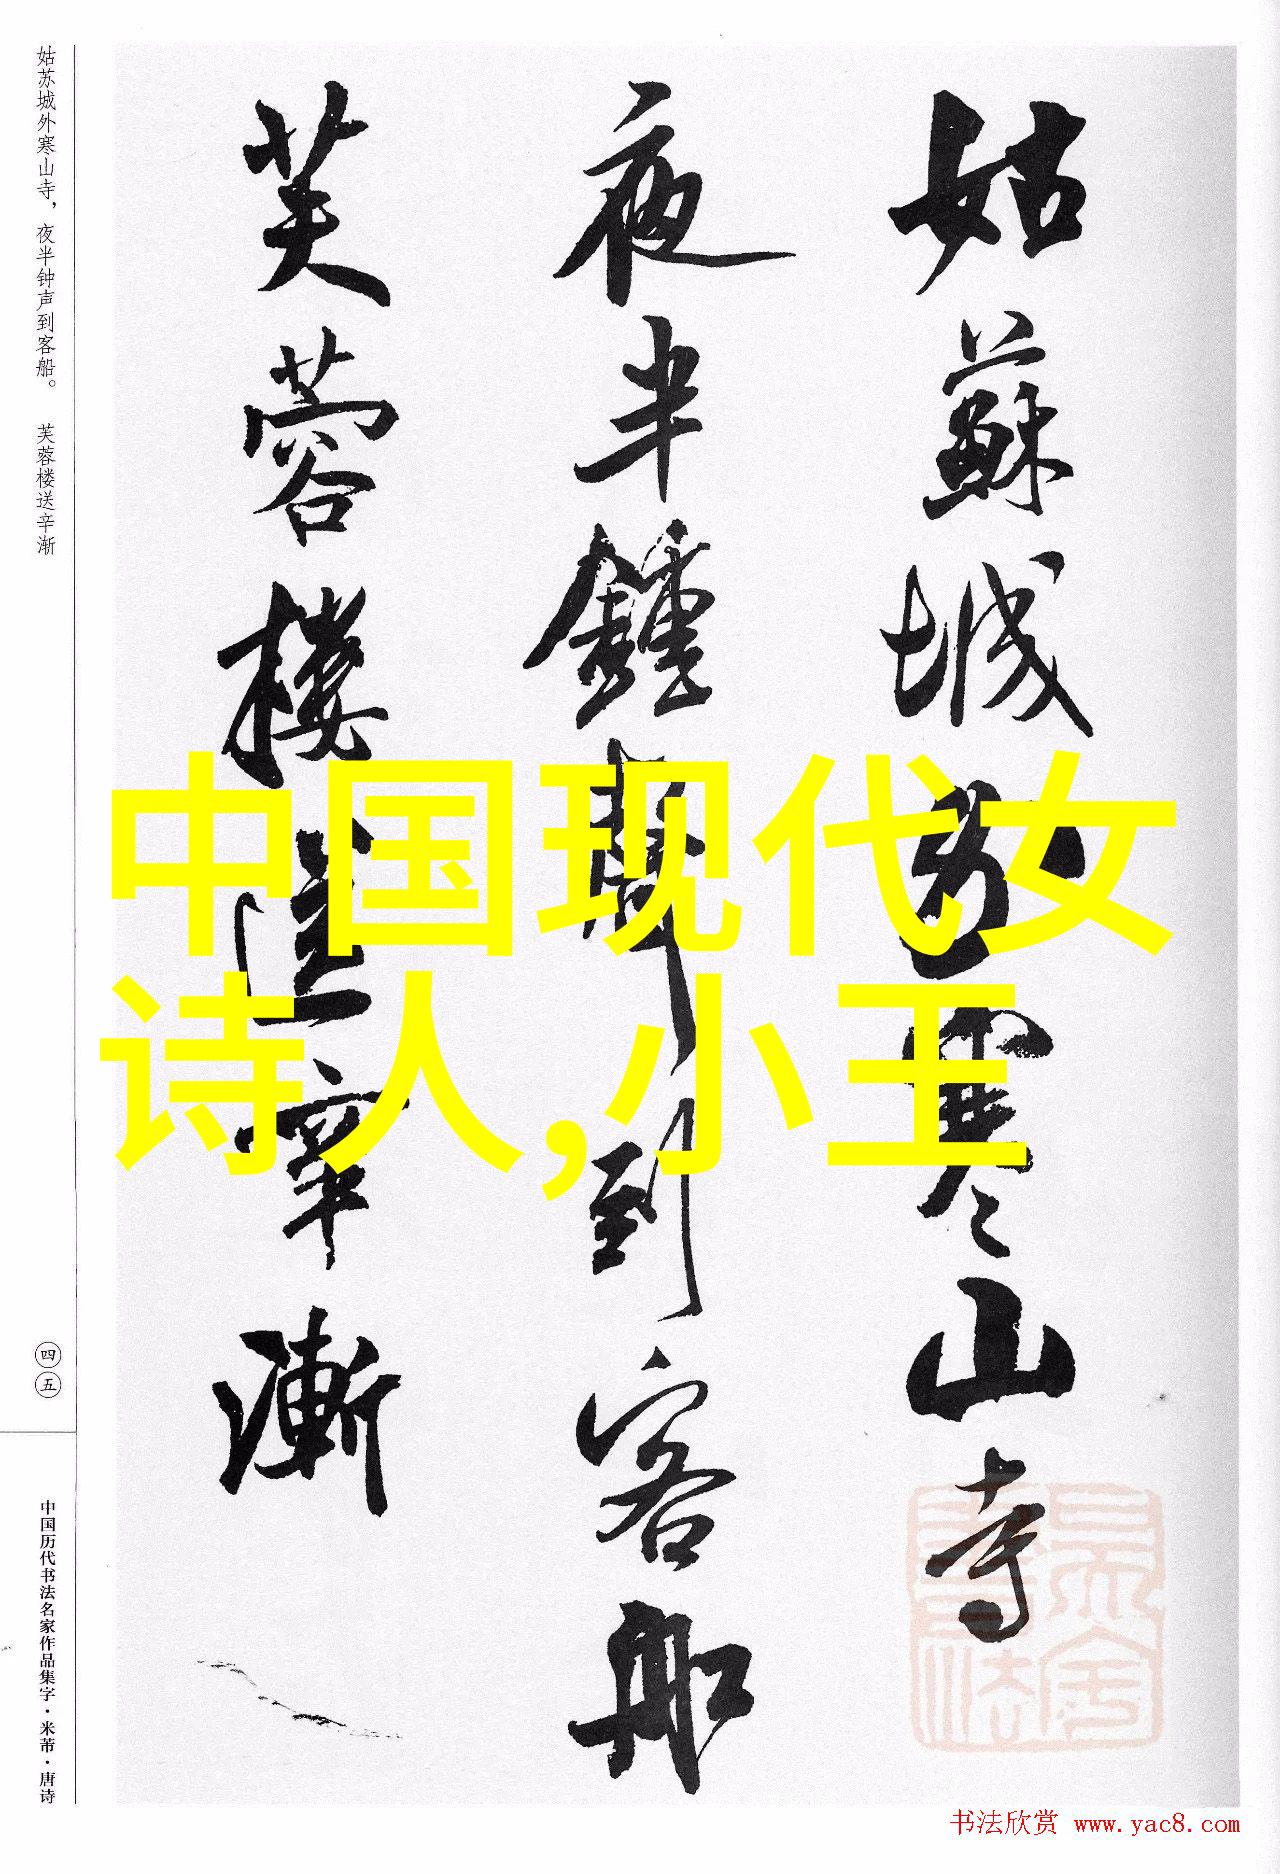 姑苏城外寒山寺，夜半钟声到客船。　芙蓉楼送辛渐
姑蘇城外寒山寺
夜半鐘聲到客船
芙蓉樓送辛漸
中国现代女
诗人,小王
四五
中国历代书法名家作品集字·米芾·唐诗
书法欣赏 www.yac8.com